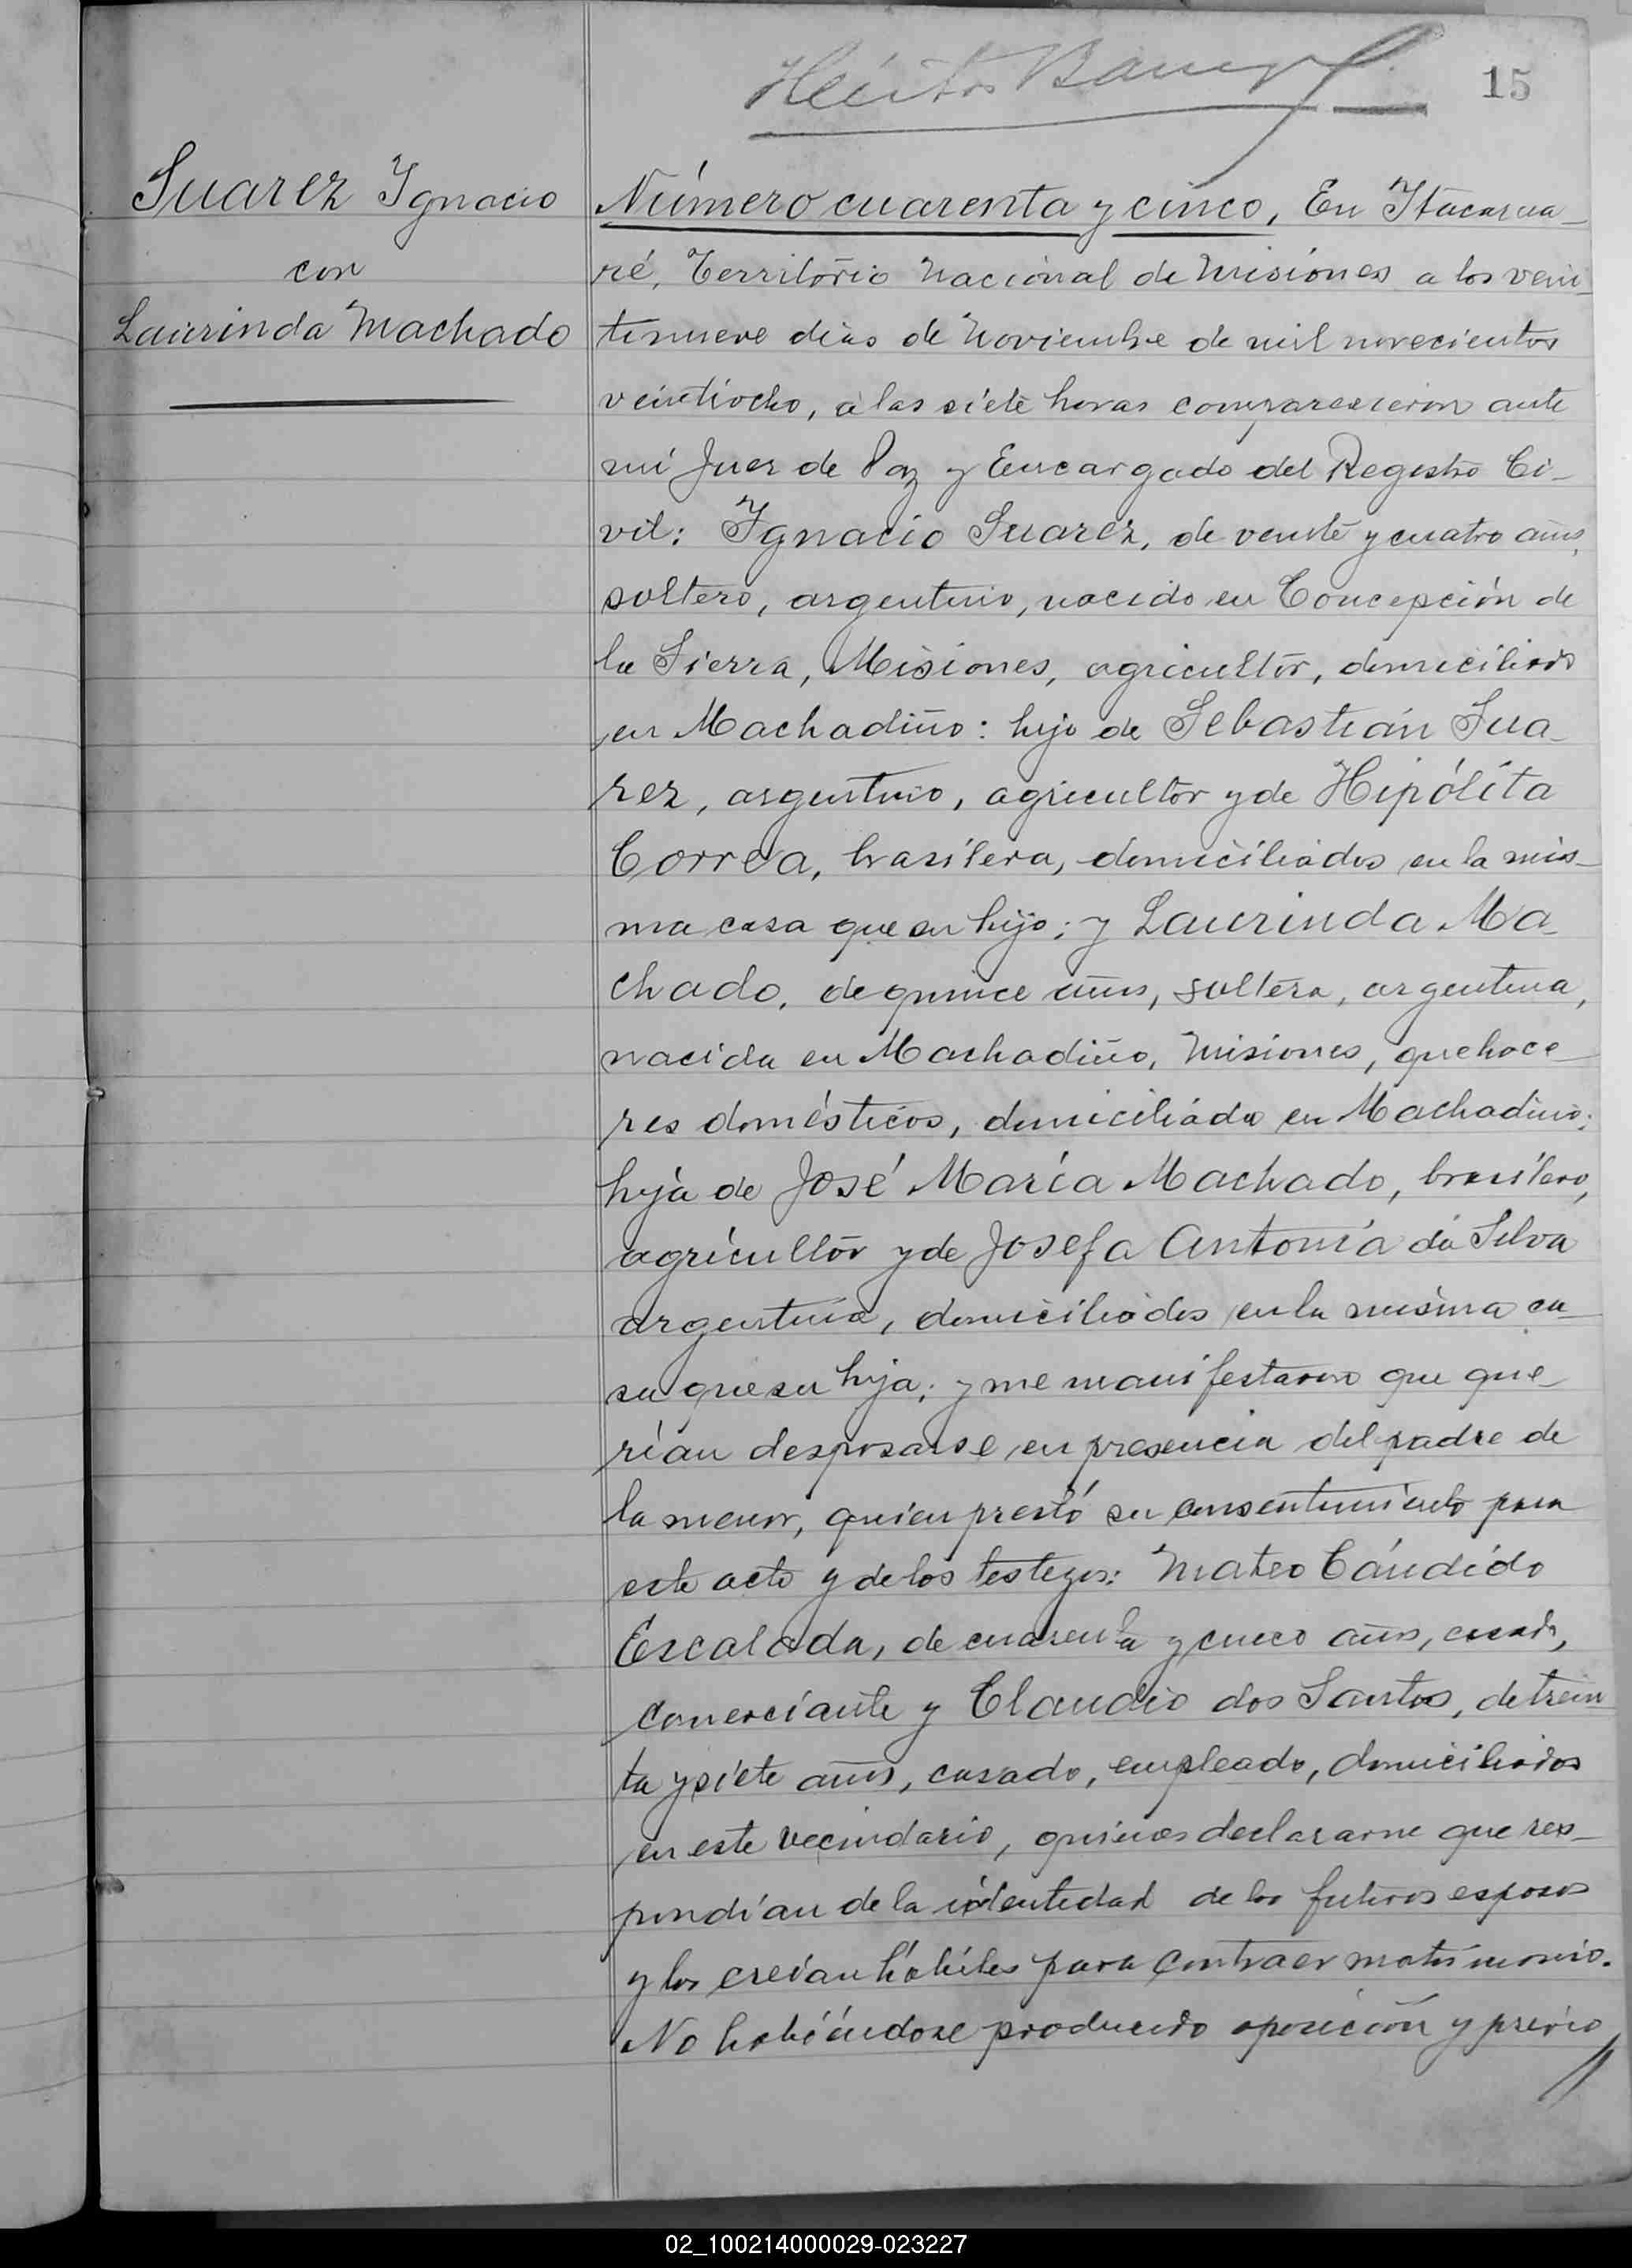 15
Suarez Ygnacio
con
Laurinda Machado
Número cuarenta y cinco, En Itacarua-
ré, Territorio Nacional de Misiones a los vein-
tinueve dias de Noviembre de mil novecientos
veintiocho, a las siete horas comparecieron ante
mi Juez de Paz y Encargado del Registro Ci-
vil: Ygnacio Suarez, de veinte y cuatro años,
soltero, argentino, nacido en Concepción de
la Sierra, Misiones, agricultor, domiciliado
en Machadiño: hijo de Sebastián Sua-
rez, argentino, agricultor y de Hipólita
Correa, brasilera, domiciliados en la mis-
ma casa que su hijo; y Laurinda Ma-
chado, de quince años, soltera, argentina,
nacida en Machadiño, Misiones, quehace-
res domésticos, domiciliada en Machadiño;
hija de José María Machado, brasilero,
agricultor y de Josefa Antonia da Silva
argentina, domiciliados en la misma ca-
sa que su hija; y me manifestaron que que-
rían desposarse en presencia del padre de
la menor, quien prestó su consentimiento para
este acto y de los testigos: Mateo Cándido
Escalada, de cuarenta y cinco años, casado,
comerciante y Claudio dos Santos, de trein
ta y siete años, casado, empleado, domiciliados
en este vecindario, quienes declararme que res-
pondían de la identidad de los futuros esposos
y los creían hábiles para contraer matrimonio.
No habiéndose producido oposición y previo
//
02_100214000029-023227